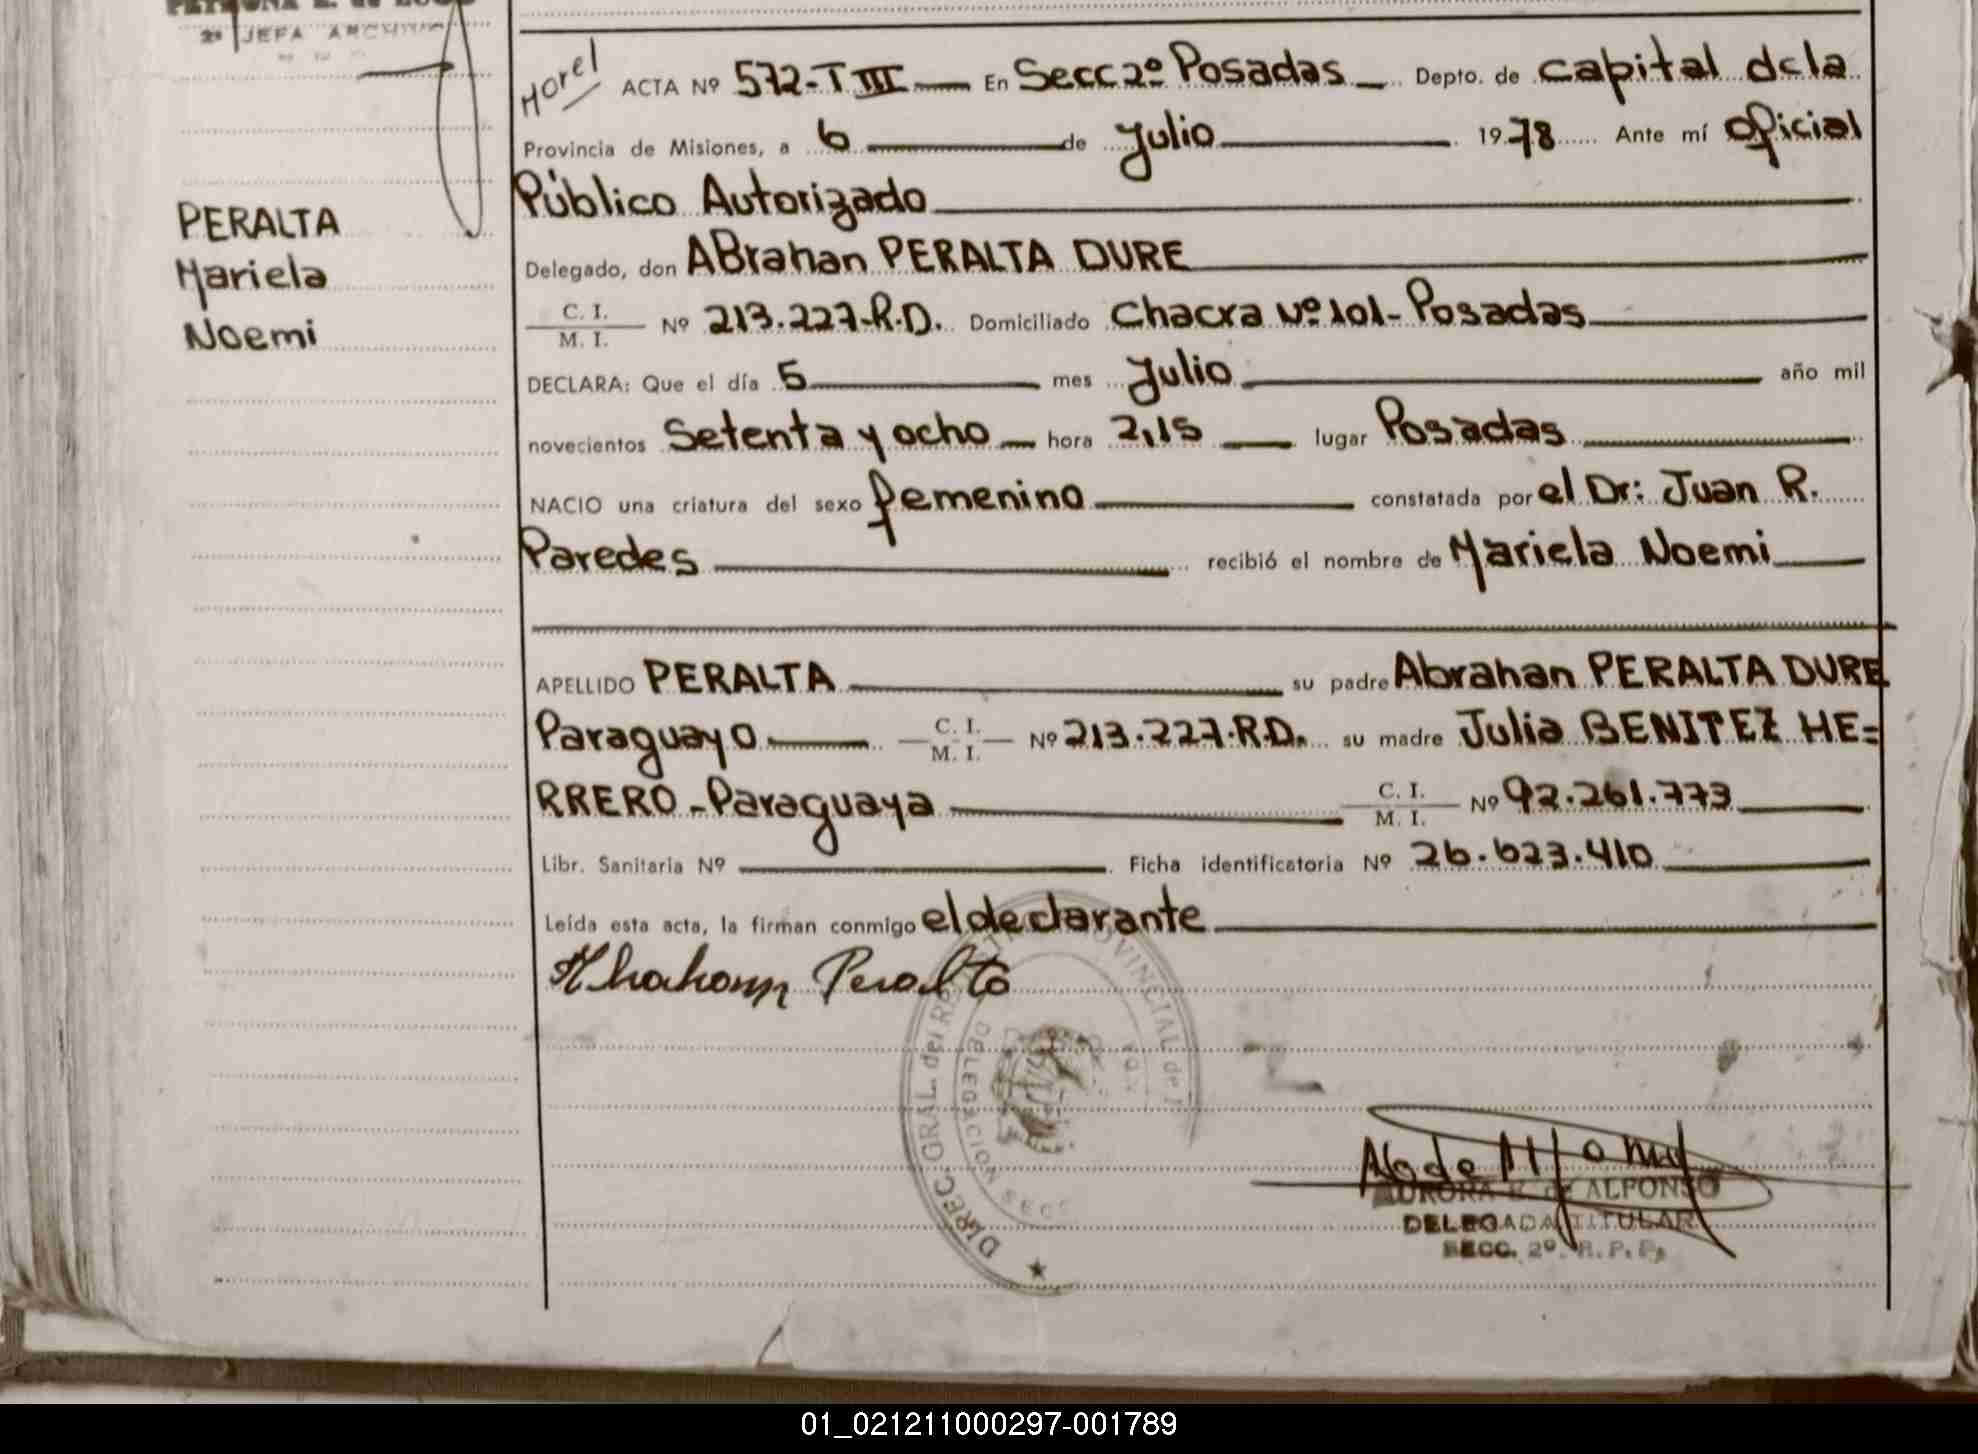 2ª JEFA ARCHIVO
Morel ACTA Nº 572-T III En Secc 2º Posadas Depto. de Capital de la
Provincia de Misiones, a 6 de Julio 1978 Ante mí Oficial
Público Autorizado
PERALTA
Mariela
Noemi
Delegado, don ABrahan PERALTA DURE
C. I.
M. I. Nº 213.227-R.D. Domiciliado Chacra Nº 101-Posadas
DECLARA: Que el día 5 mes Julio año mil
novecientos Setenta y ocho hora 2,15 lugar Posadas
NACIO una criatura del sexo femenino constatada por el Dr: Juan R.
Paredes recibió el nombre de Mariela Noemi
APELLIDO PERALTA su padre Abrahan PERALTA DURE
Paraguayo C. I. M. I. Nº 213.227.R.D. su madre Julia BENITEZ HE=
RRERO-Paraguaya C. I. M. I. Nº 92.261.773
Libr. Sanitaria Nº Ficha identificatoria Nº 26.623.410
Leída esta acta, la firman conmigo el declarante
Abrahan Peralta
DIRECC. GRAL. del REG. PROVINCIAL de
DELEGACION
AURORA de ALFONSO
DELEGADA TITULAR
SECC. 2º. R. P. P.
01_021211000297-001789